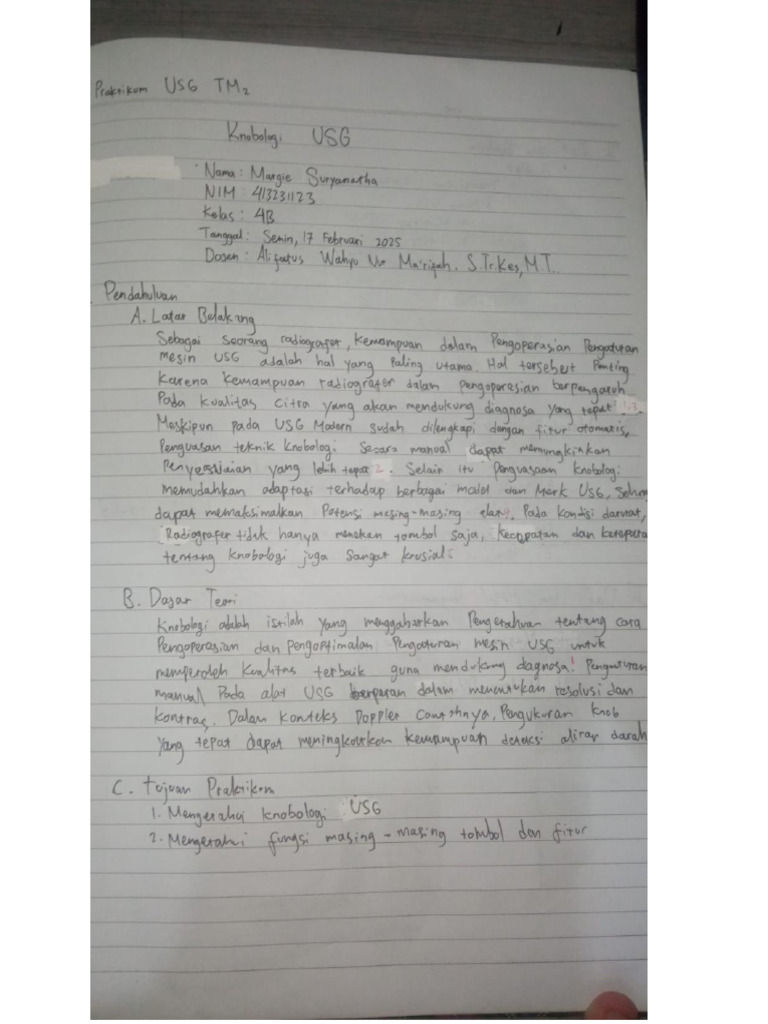 Praktikum USG TM2
Knobologi USG
Nama : Margie Suryanatha
NIM : 413231123
Kelas : 4B
Tanggal : Senin, 17 Februari 2025
Dosen : Alifatus Wahyu Nur Ma'rifah. S.Tr.Kes, M.T.
Pendahuluan
A. Latar Belakang
Sebagai seorang radiografer, kemampuan dalam Pengoperasian Pengaturan
mesin USG adalah hal yang Paling utama. Hal tersebut Penting
karena kemampuan radiografer dalam pengoperasian berpengaruh
Pada kualitas citra yang akan mendukung diagnosa yang tepat 1,3.
Meskipun pada USG Modern sudah dilengkapi dengan fitur otomatis,
Penguasan teknik knobologi secara manual dapat memungkinkan
Penyesuaian yang lebih tepat 2. Selain itu penguasaan knobologi
memudahkan adaptasi terhadap berbagai model dan Merk USG,
dapat memaksimalkan Potensi masing-masing alat. Pada kondisi darurat,
Radiografer tidak hanya menekan tombol saja, kecepatan dan
tentang knobologi juga sangat krusial.
B. Dasar Teori
Knobologi adalah istilah yang Pengetahuan tentang cara
Pengoperasian dan pengoptimalan Pengaturan mesin USG untuk
memperoleh kualitas terbaik guna mendukung dagnosa. Pengaturan
manual Pada alat USG berperan dalam menentukan resolusi dan
kontras. Dalam konteks Doppler Contohnya, Pengukuran knob
yang tepat dapat meningkatkan kemampuan deteksi aliran darah
C. Tujuan Praktikum
1. Mengetahui knobologi USG
2. Mengetahui fungsi masing-masing tombol dan fitur